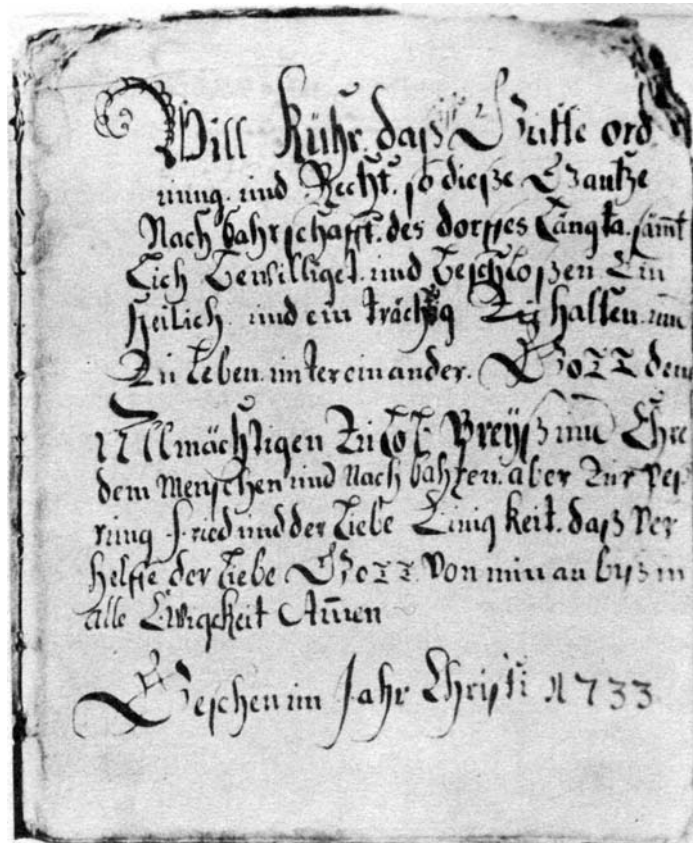 Will Kühr. daß Gutte ord
nung. und Recht. so dieße Gantze
Nachbahrschafft. des dorffes Längta. sämt
lich bewilliget. und beschloßen Ein
heilich. und ein trächtig Zu halten. und
Zu leben. untereinander. GOTT dem
Allmächtigen Zu lob. Preyß und Ehre
dem Menschen und Nachbahren. aber Zur
rung fried und der liebe Einigkeit. daß Ver
helffe der liebe GOTT von nun an byß in
alle Ewigkeit Amen
Geschen im Jahr Christi 1733